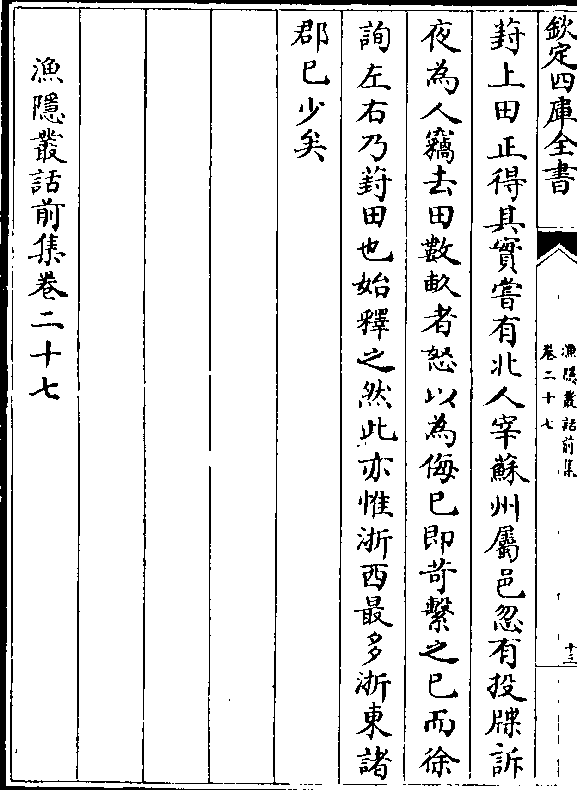 欽定四庫全書
漁隱叢話前集
卷二十七
十三
葑上田正得其實嘗有北人宰蘇州屬邑忽有投牒訴
夜為人竊去田數畝者怒以為侮已即苛繫之已而徐
詢左右乃葑田也始釋之然此亦惟浙西最多浙東諸
郡已少矣
漁隱叢話前集卷二十七